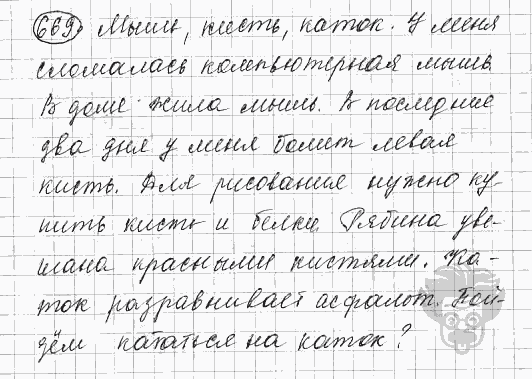 669. Мышь, кисть, каток. У меня
сломалась компьютерная мышь.
В доме жила мышь. В последние
два дня у меня болит левая
кисть. Для рисования нужно ку-
пить кисть и белки. Рябина уве-
шана красными кистями. Ка-
ток разравнивает асфальт. Пой-
дём кататься на каток?